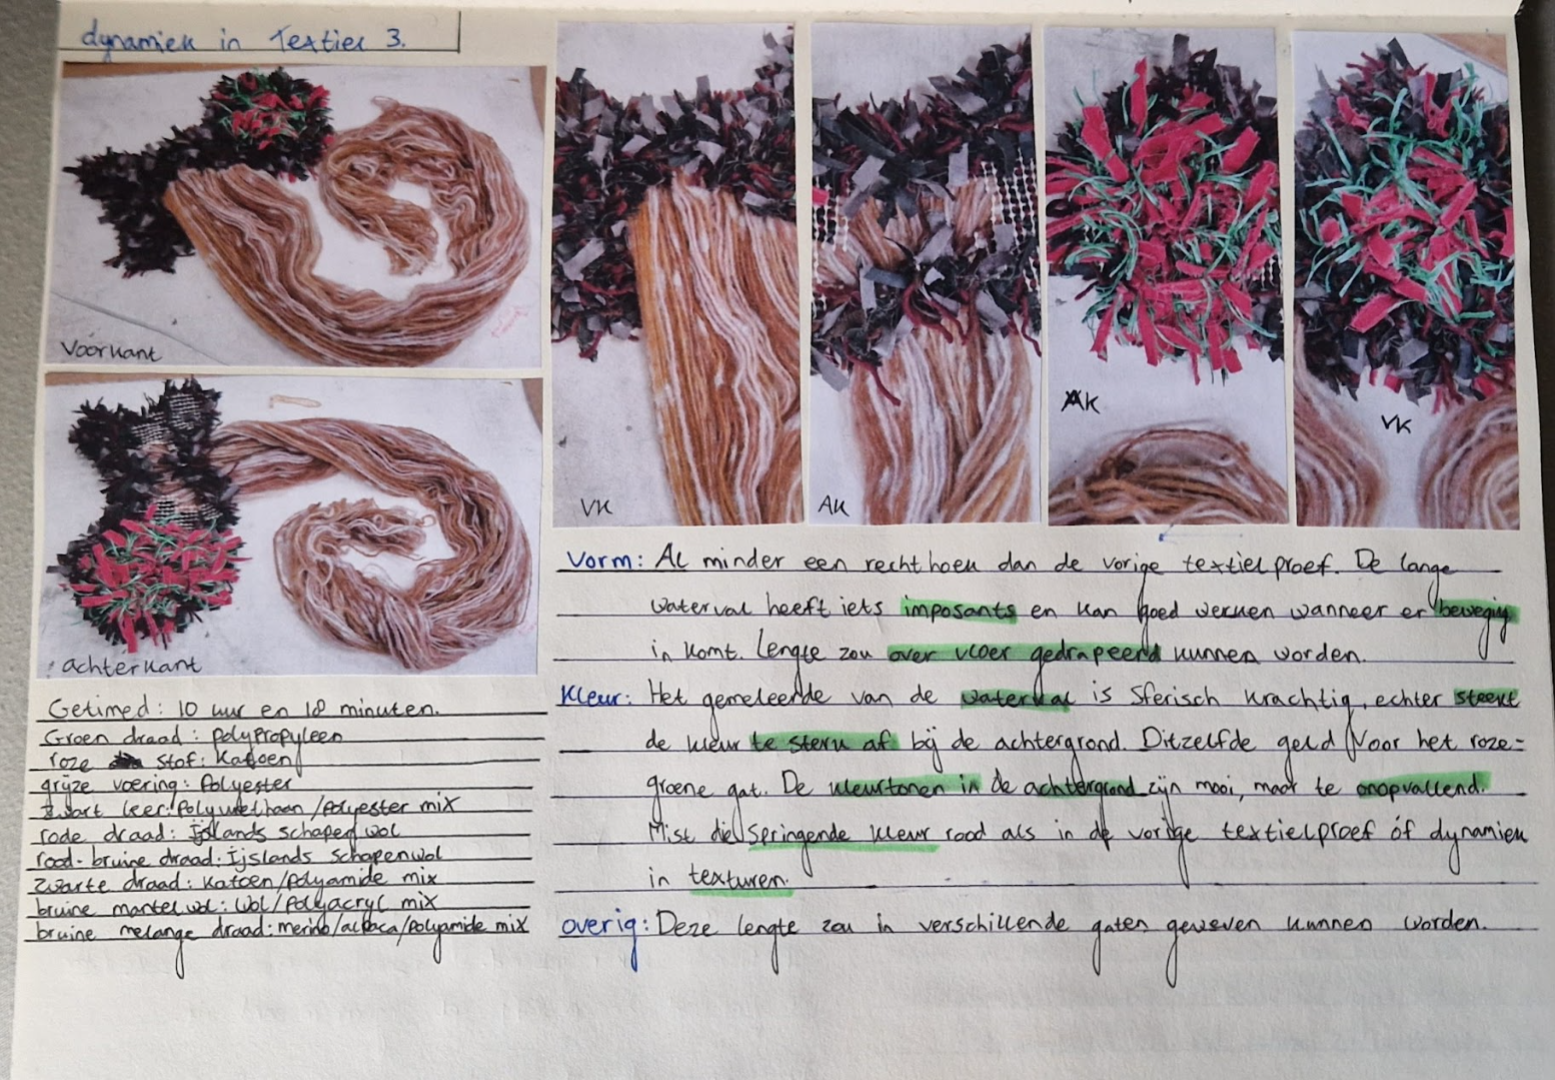 dynamiek in Textiel 3.
Voorkant
achterkant
VK
AK
AK
VK
Getimed: 10 uur en 18 minuten.
Groen draad: polypropyleen
roze stof: Katoen
grijze voering: Polyester
zwart leer: Polyurethaan/polyester mix
rode draad: Ijslands schapenwol
rood-bruine draad: Ijslands schapenwol
zwarte draad: katoen/polyamide mix
bruine mantel wol: Wol/Polyacryl mix
bruine melange draad: merino/alpaca/polyamide mix
Vorm: Al minder een rechthoek dan de vorige textielproef. De lange
waterval heeft iets imposants en kan goed werken wanneer er beweging
in komt. Lengte zou over vloer gedrapeerd kunnen worden.
Kleur: Het gemeleerde van de waterval is Sferisch krachtig, echter steekt
de kleur te sterk af bij de achtergrond. Ditzelfde geld voor het roze-
groene gat. De kleurtonen in de achtergrond zijn mooi, maar te onopvallend.
Mist die springende kleur rood als in de vorige textielproef óf dynamiek
in texturen.
overig: Deze lengte zou in verschillende gaten geweven kunnen worden.